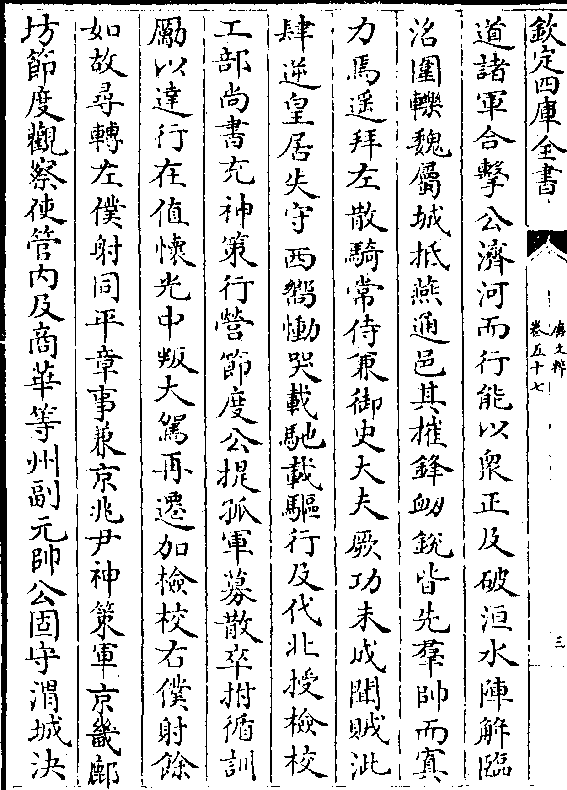 欽定四庫全書
唐文粹
卷五十七
三
道諸軍合擊公濟河而行能以衆正及破洹水陣解臨
洺圍轢魏屬城抵燕通邑其摧鋒衂銳皆先羣帥而寘
力焉遥拜左散騎常侍兼御史大夫厥功未成聞賊泚
肆逆皇居失守西嚮慟哭載馳載驅行及代北授檢校
工部尚書充神策行營節度公提孤軍募散卒拊循訓
勵以達行在值懷光中叛大駕再遷加檢校右僕射餘
如故尋轉左僕射同平章事兼京兆尹神策軍京畿鄜
坊節度觀察使管内及商華等州副元帥公固守渭城決